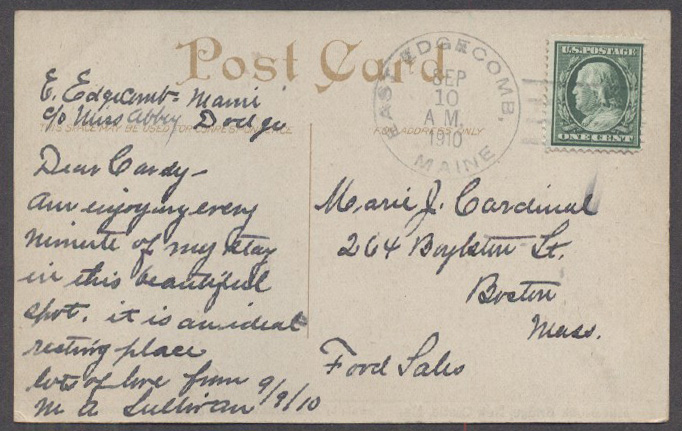 Post Card
E. Edgecomb - Maine
c/o Miss Abby Dodge
THIS SPACE MAY BE USED FOR CORRESPONDENCE
FOR ADDRESS ONLY
EAST EDGECOMB,
SEP
10
A M.
1910
MAINE
U.S. POSTAGE
ONE CENT
Dear Cardy -
Am enjoying every
minute of my stay
in this beautiful
spot. it is an ideal
resting place
lots of love from 9/9/10
M A Sullivan
Marie J. Cardinal
264 Boylston St.
Boston
Mass.
Ford Sales